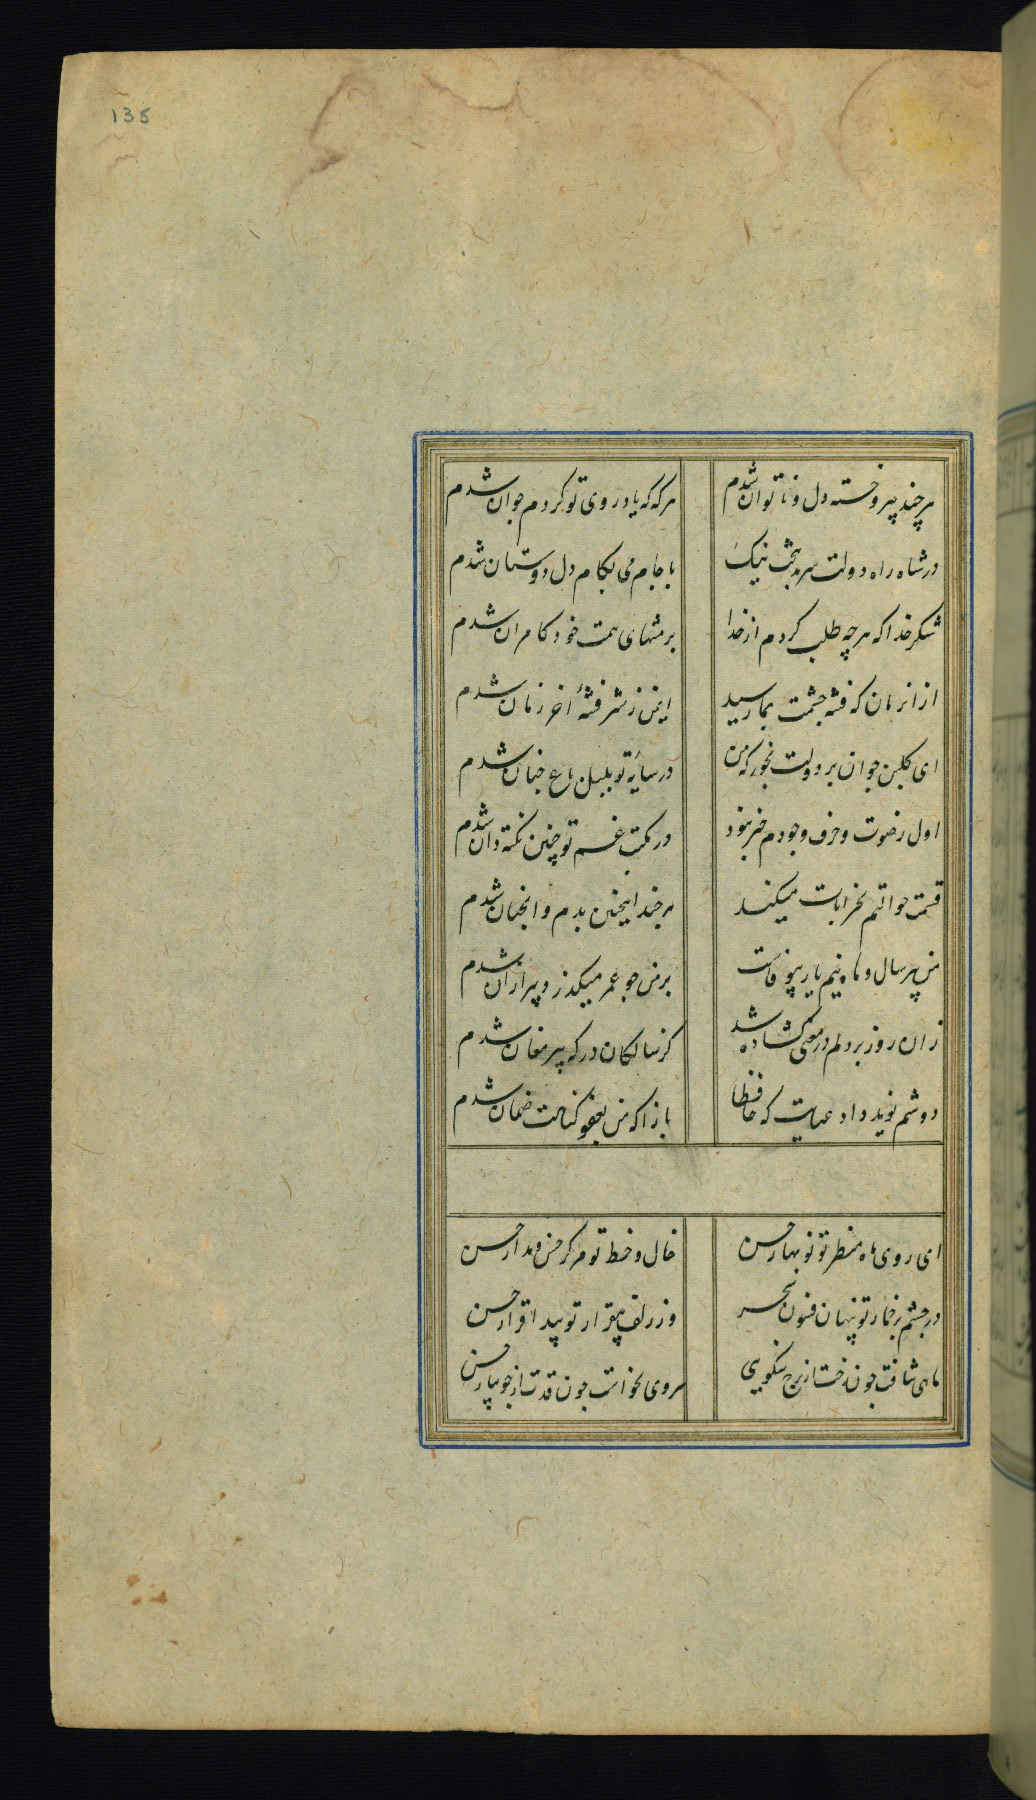 135
هر چند پیر و خسته دل و ناتوان شدم	هر که که یاد روی تو کردم جوان شدم
در شاه راه دولت سرمد بتخت نیک	با جام می بکام دل دوستان شدم
شکر خدا که هر چه طلب کردم از خدا	بر منتهای همت خود کامران شدم
از ان زمان که فتنه چشمت بما رسید	ایمن ز شر فتنهٔ اخر زمان شدم
ای کلبن جوان بر دولت بخور که من	در سایهٔ تو بلبل باغ جنان شدم
اول ز صوت و حرف وجودم خبر نبود	در مکتب غم تو چنین نکته دان شدم
قسمت حوالتم بخرابات میکند	هر چند اینچنین بدم و انچنان شدم
من پیر سال و ماه نیم یار بیوفاست	بر من چو عمر میکذرد پیر ازان شدم
زان روز بر دلم در معنی کشاده شد	کز ساکنان درکه پیر مغان شدم
دوشم نوید داد عنایت که حافظا	باز ا که من بعفو کناهت ضمان شدم
ای روی ماه منظر تو نوبهار حسن	خال و خط تو مرکز حسن و مدار حسن
در چشم پر خمار تو پنهان فسون سحر	وز زلف بیقرار تو پیدا قرار حسن
ماهی نتافت چون رخت از برج نیکویی	سروی نخواست چون قدت از جویبار حسن